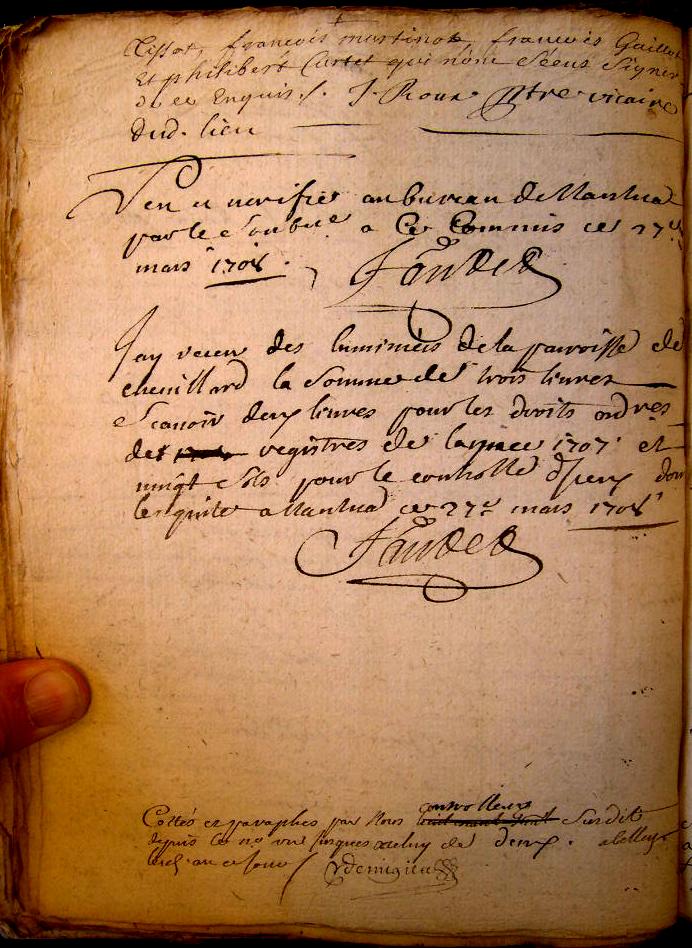 Tissot, françois martinot, françois Gaillot
Et philibert Curtet qui n'ont Sceus Signer
de ce Enquis ./. J. Roux Ptre vicaire
dud. lieu
Veu et veriffié au bureau de Nantua
par le Soubné a Ce Commis ce 27e
mars 1708. Fauded
Jay receu des luminiers de la parroisse de
chevillard la Somme de trois livres
Scavoir deux livres pour les droits ordres
des registres de lannee 1707 et
vingt Sols pour le controlle diceux dont
les quite a Nantua ce 27e mars 1708
Fauded
Cottés et paraphés par Nous controlleur Susdit
depuis le no un jusques a celuy de deux. a belley
led. an et jour / demigieu